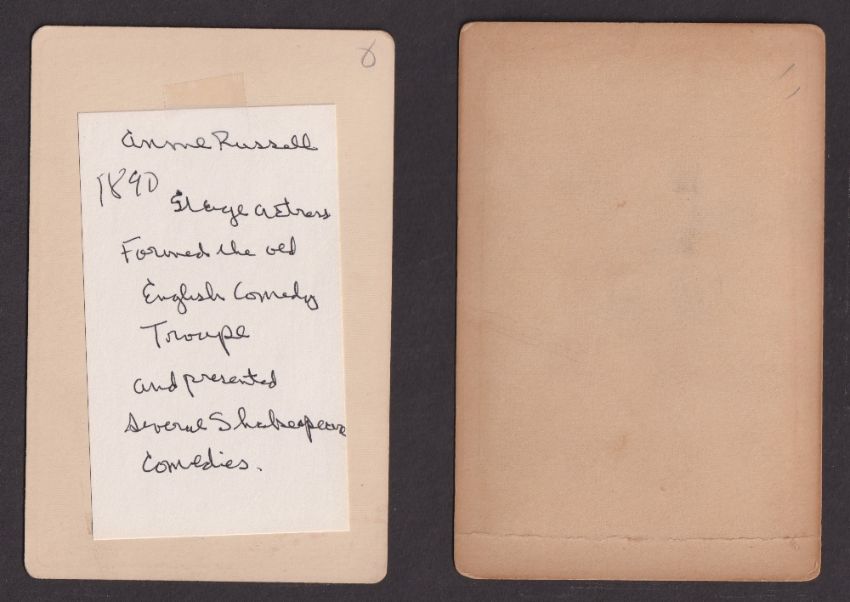 8
Annie Russell
1890
Stage actress
Formed the old
English Comedy
Troupe
and presented
several Shakespeare
Comedies.